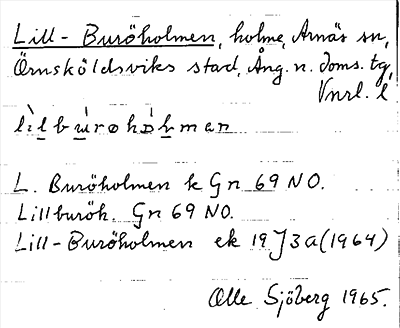 Lill-Buröholmen, holme, Arnäs sn,
Örnsköldsviks stad, Ång. n. doms. tg,
Vnrl. l
L. Buröholmen k Gn 69 NO.
Lillburöh. Gn 69 NO.
Lill-Buröholmen ek 19J3a(1964)
Olle Sjöberg 1965.